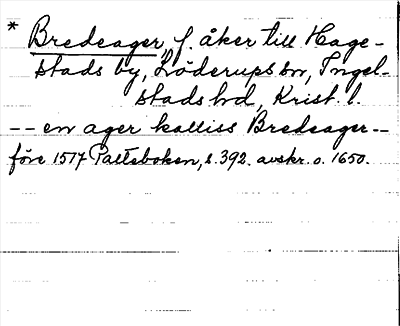 * Bredeager, f. åker till Hage-
stads by, Löderups sn, Ingel-
stads hd, Krist. l.
-- en ager kalliss Bredeager --
före 1517 Palteboken, s. 392. avskr. o. 1650.